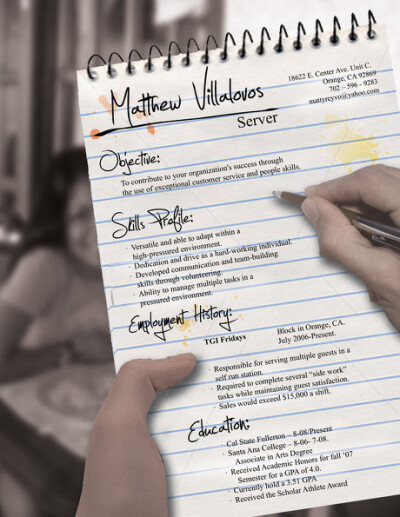 Matthew Villalovos
Server
18622 E. Center Ave. Unit C.
Orange, CA 92869
702 – 596 - 9283
mattyreyvo@yahoo.com
Objective:
To contribute to your organization's success through
the use of exceptional customer service and people skills.
Skills Profile:
· Versatile and able to adapt within a
high-pressured environment.
· Dedication and drive as a hard-working individual.
· Developed communication and team-building
skills through volunteering.
· Ability to manage multiple tasks in a
pressured environment.
Employment History:
TGI Fridays
Block in Orange, CA.
July 2006-Present.
· Responsible for serving multiple guests in a
self run station.
· Required to complete several "side work"
tasks while maintaining guest satisfaction.
· Sales would exceed $15,000 a shift.
Education:
· Cal State Fullerton – 8-08/Present
· Santa Ana College – 8-06- 7-08.
Associate in Arts Degree
· Received Academic Honors for fall '07
Semester for a GPA of 4.0.
· Currently hold a 3.51 GPA
· Received the Scholar Athlete Award